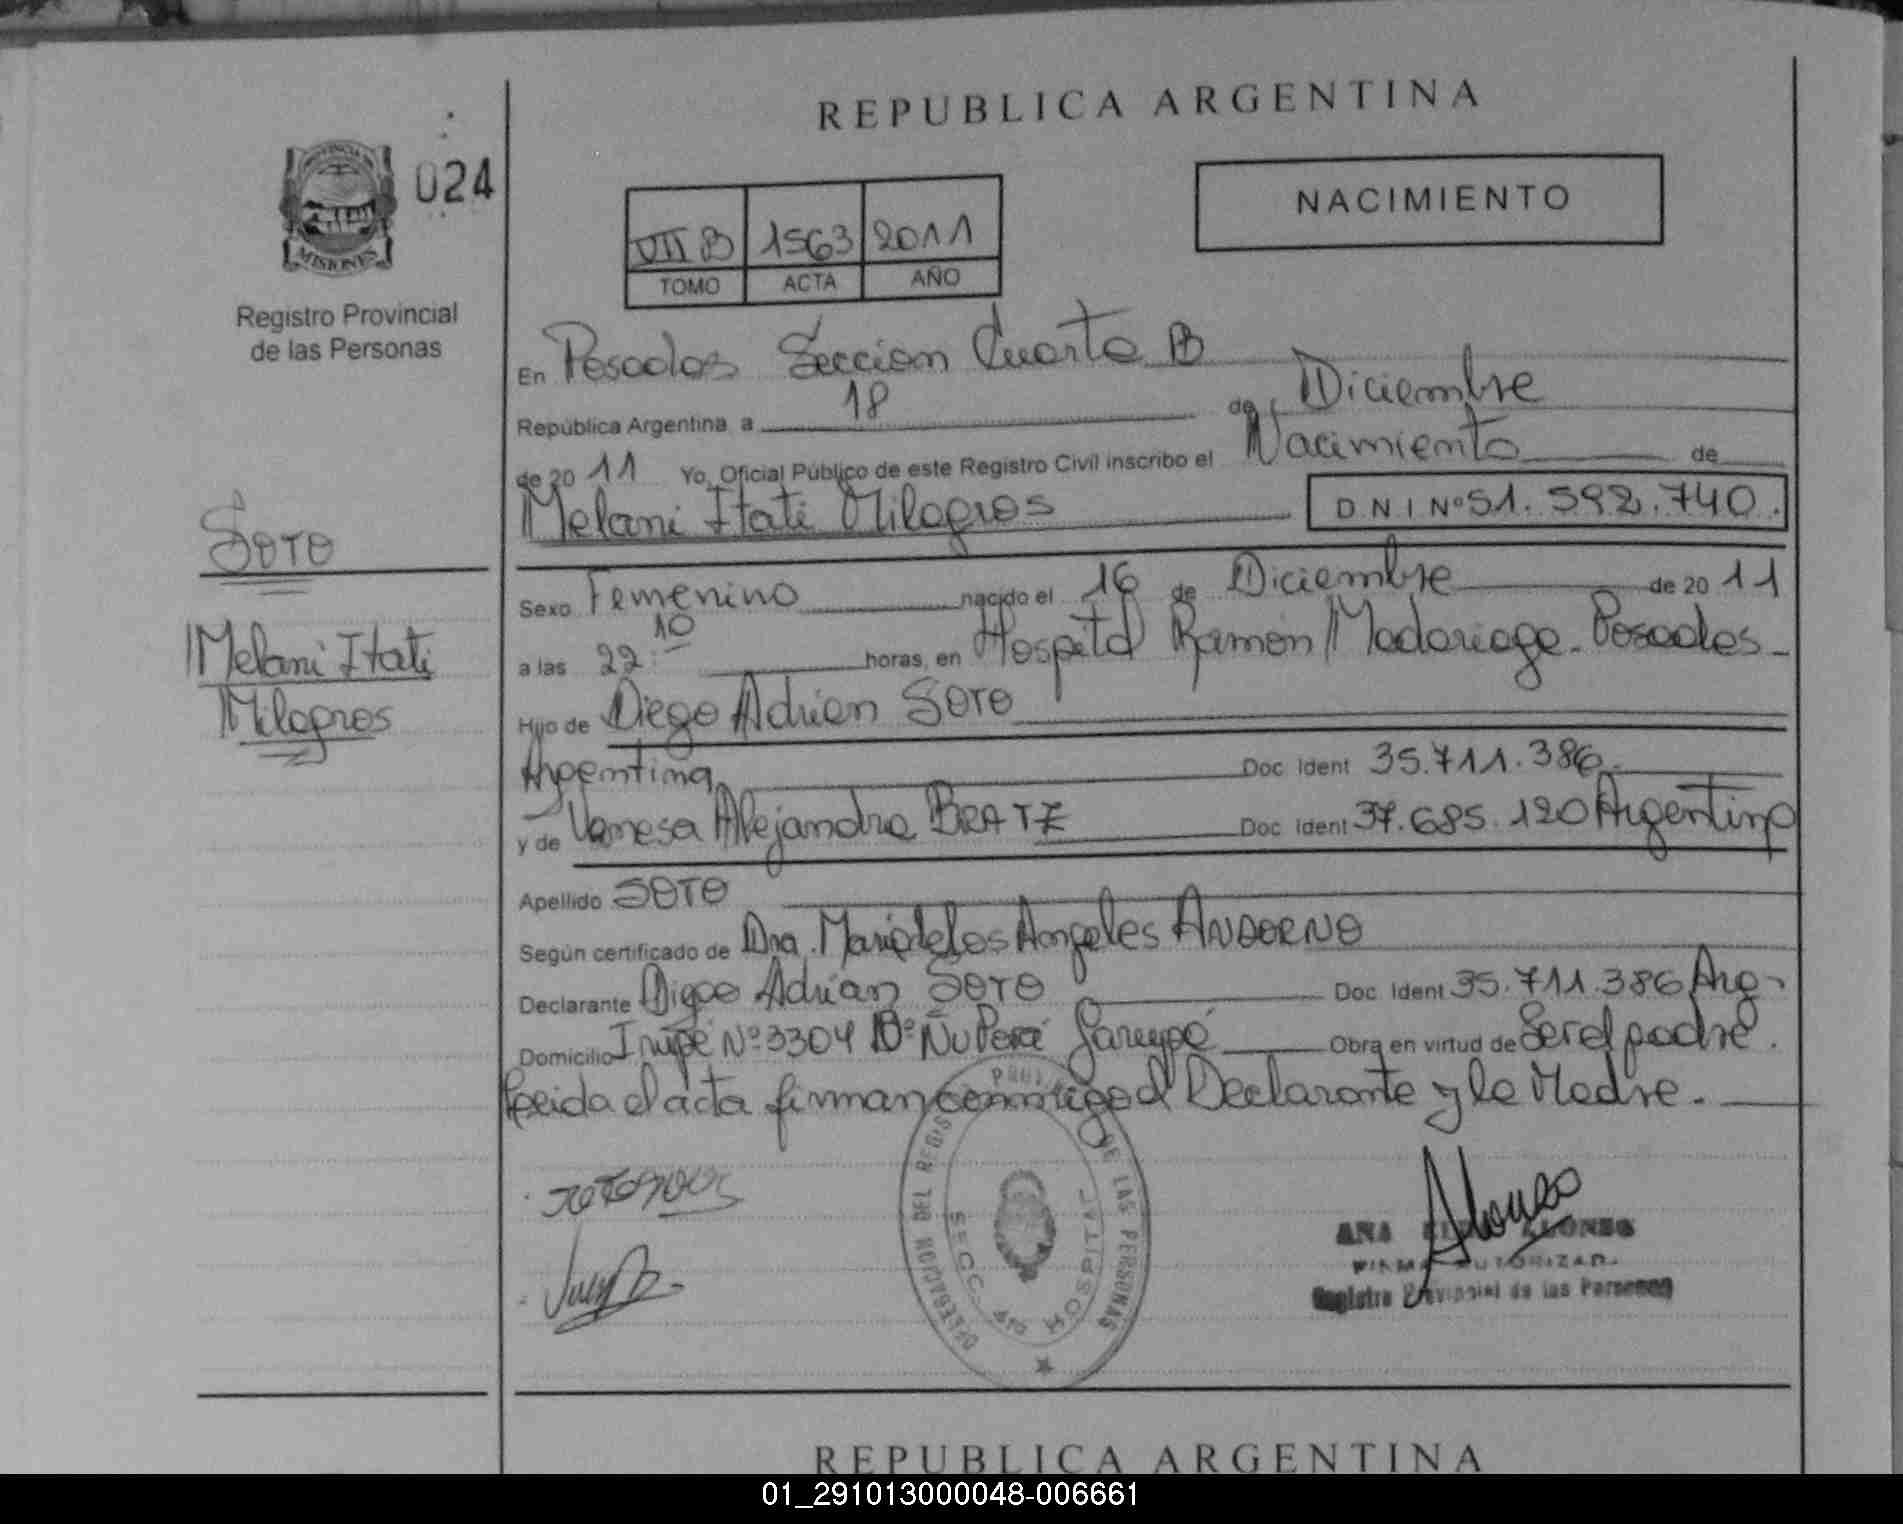 REPUBLICA ARGENTINA
PROVINCIA DE
MISIONES
024
Registro Provincial
de las Personas
VII B 1563 2011
TOMO ACTA AÑO
NACIMIENTO
En Posadas Seccion Cuarta B
República Argentina a 18 de Diciembre
de 20 11 Yo, Oficial Público de este Registro Civil inscribo el Nacimiento de
Melani Itati Milagros D N I Nº 51.592.740.
SOTO
Melani Itati
Milagros
Sexo Femenino nacido el 16 de Diciembre de 20 11
a las 22:10 horas, en Hospital Ramon Madariaga - Posadas -
Hijo de Diego Adrian SOTO
Argentina Doc Ident 35.711.386.
y de Vanesa Alejandra BRATZ Doc Ident 37.685.120 Argentina
Apellido SOTO
Según certificado de Dra. Maria de los Angeles ANDORNO
Declarante Diego Adrian SOTO Doc Ident 35.711.386 Arg-
Domicilio Irupé Nº 3304 Bº Ñu Porá Garupá Obra en virtud de Ser el padre.
Leida el acta firman conmigo el Declarante y la Madre.
DELEGACION DEL REGIS PROV DE LAS PERSONAS
SECC. 4ta HOSPITAL
Alonso
ANA ALONSO
FIRMA AUTORIZADA
Registro Provincial de las Personas
REPUBLICA ARGENTINA
01_291013000048-006661